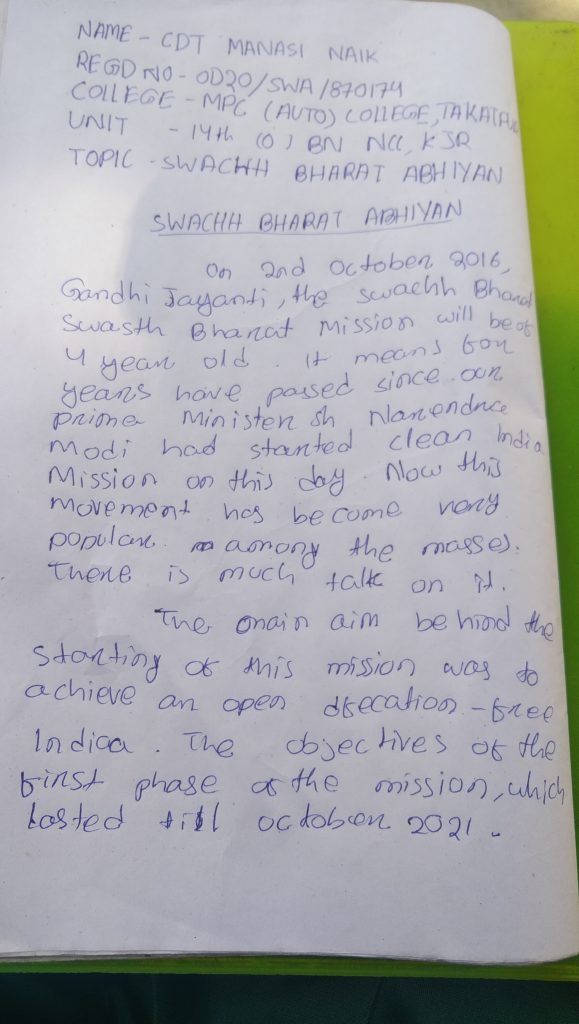 NAME - CDT MANASI NAIK
REGD NO - OD20/SWA/870174
COLLEGE - MPC (AUTO) COLLEGE, TAKATPUR
UNIT - 14th (O) BN NCC, KJR
TOPIC - SWACHH BHARAT ABHIYAN
SWACHH BHARAT ABHIYAN
On 2nd October 2016,
Gandhi Jayanti, the swachh Bharat
Swasth Bharat Mission will be of
4 year old. It means four
years have passed since our
prime Minister sh Narendra
Modi had started clean India
Mission on this day. Now this
movement has become very
popular among the masses.
There is much talk on it.
The main aim behind the
starting of this mission was to
achieve an open dfecation-free
Indiaa. The objectives of the
first phase of the mission, which
lasted till october 2021.